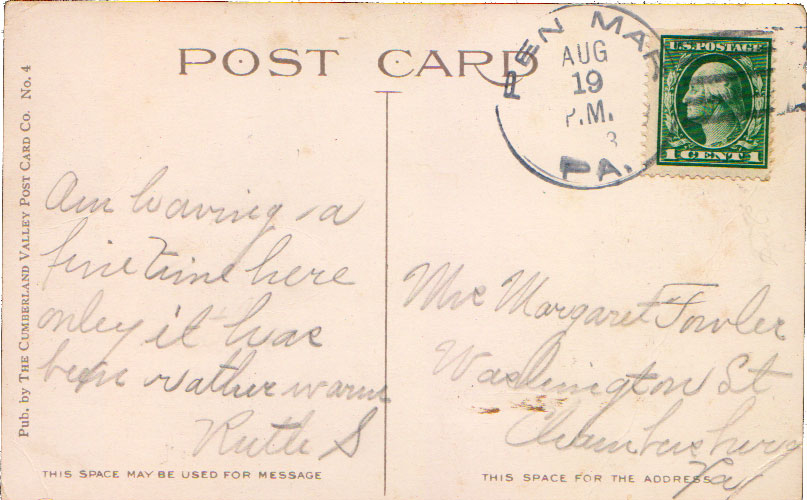 POST CARD
PEN MAR
AUG
19
P.M.
3
PA.
U.S. POSTAGE
1 CENT 1
Pub. by THE CUMBERLAND VALLEY POST CARD CO. No. 4
Am having a
fine time here
only it has
been rather warm
Ruth S
THIS SPACE MAY BE USED FOR MESSAGE
Mrs Margaret Fowler
Washington St
Chambersburg
Pa
THIS SPACE FOR THE ADDRESS